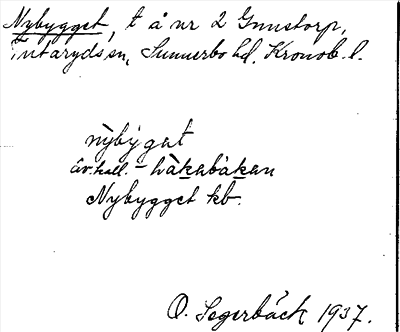 Nybygget, t å nr 2 Gnnstorp,
Vittarydssn, Sunnerbo hd. Kronob. l.
nỳbýgat
äv. kall. - hàkabàkan
Nybygget kb.
O. Segerbäck 1937.